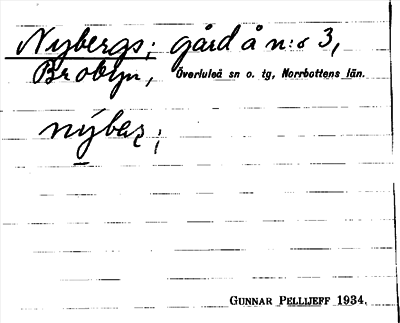 Nybergs; gård å n:o 3,
Brobyn, Överluleå sn o. tg, Norrbottens län.
nýbæʀ;
GUNNAR PELLIJEFF 1934.